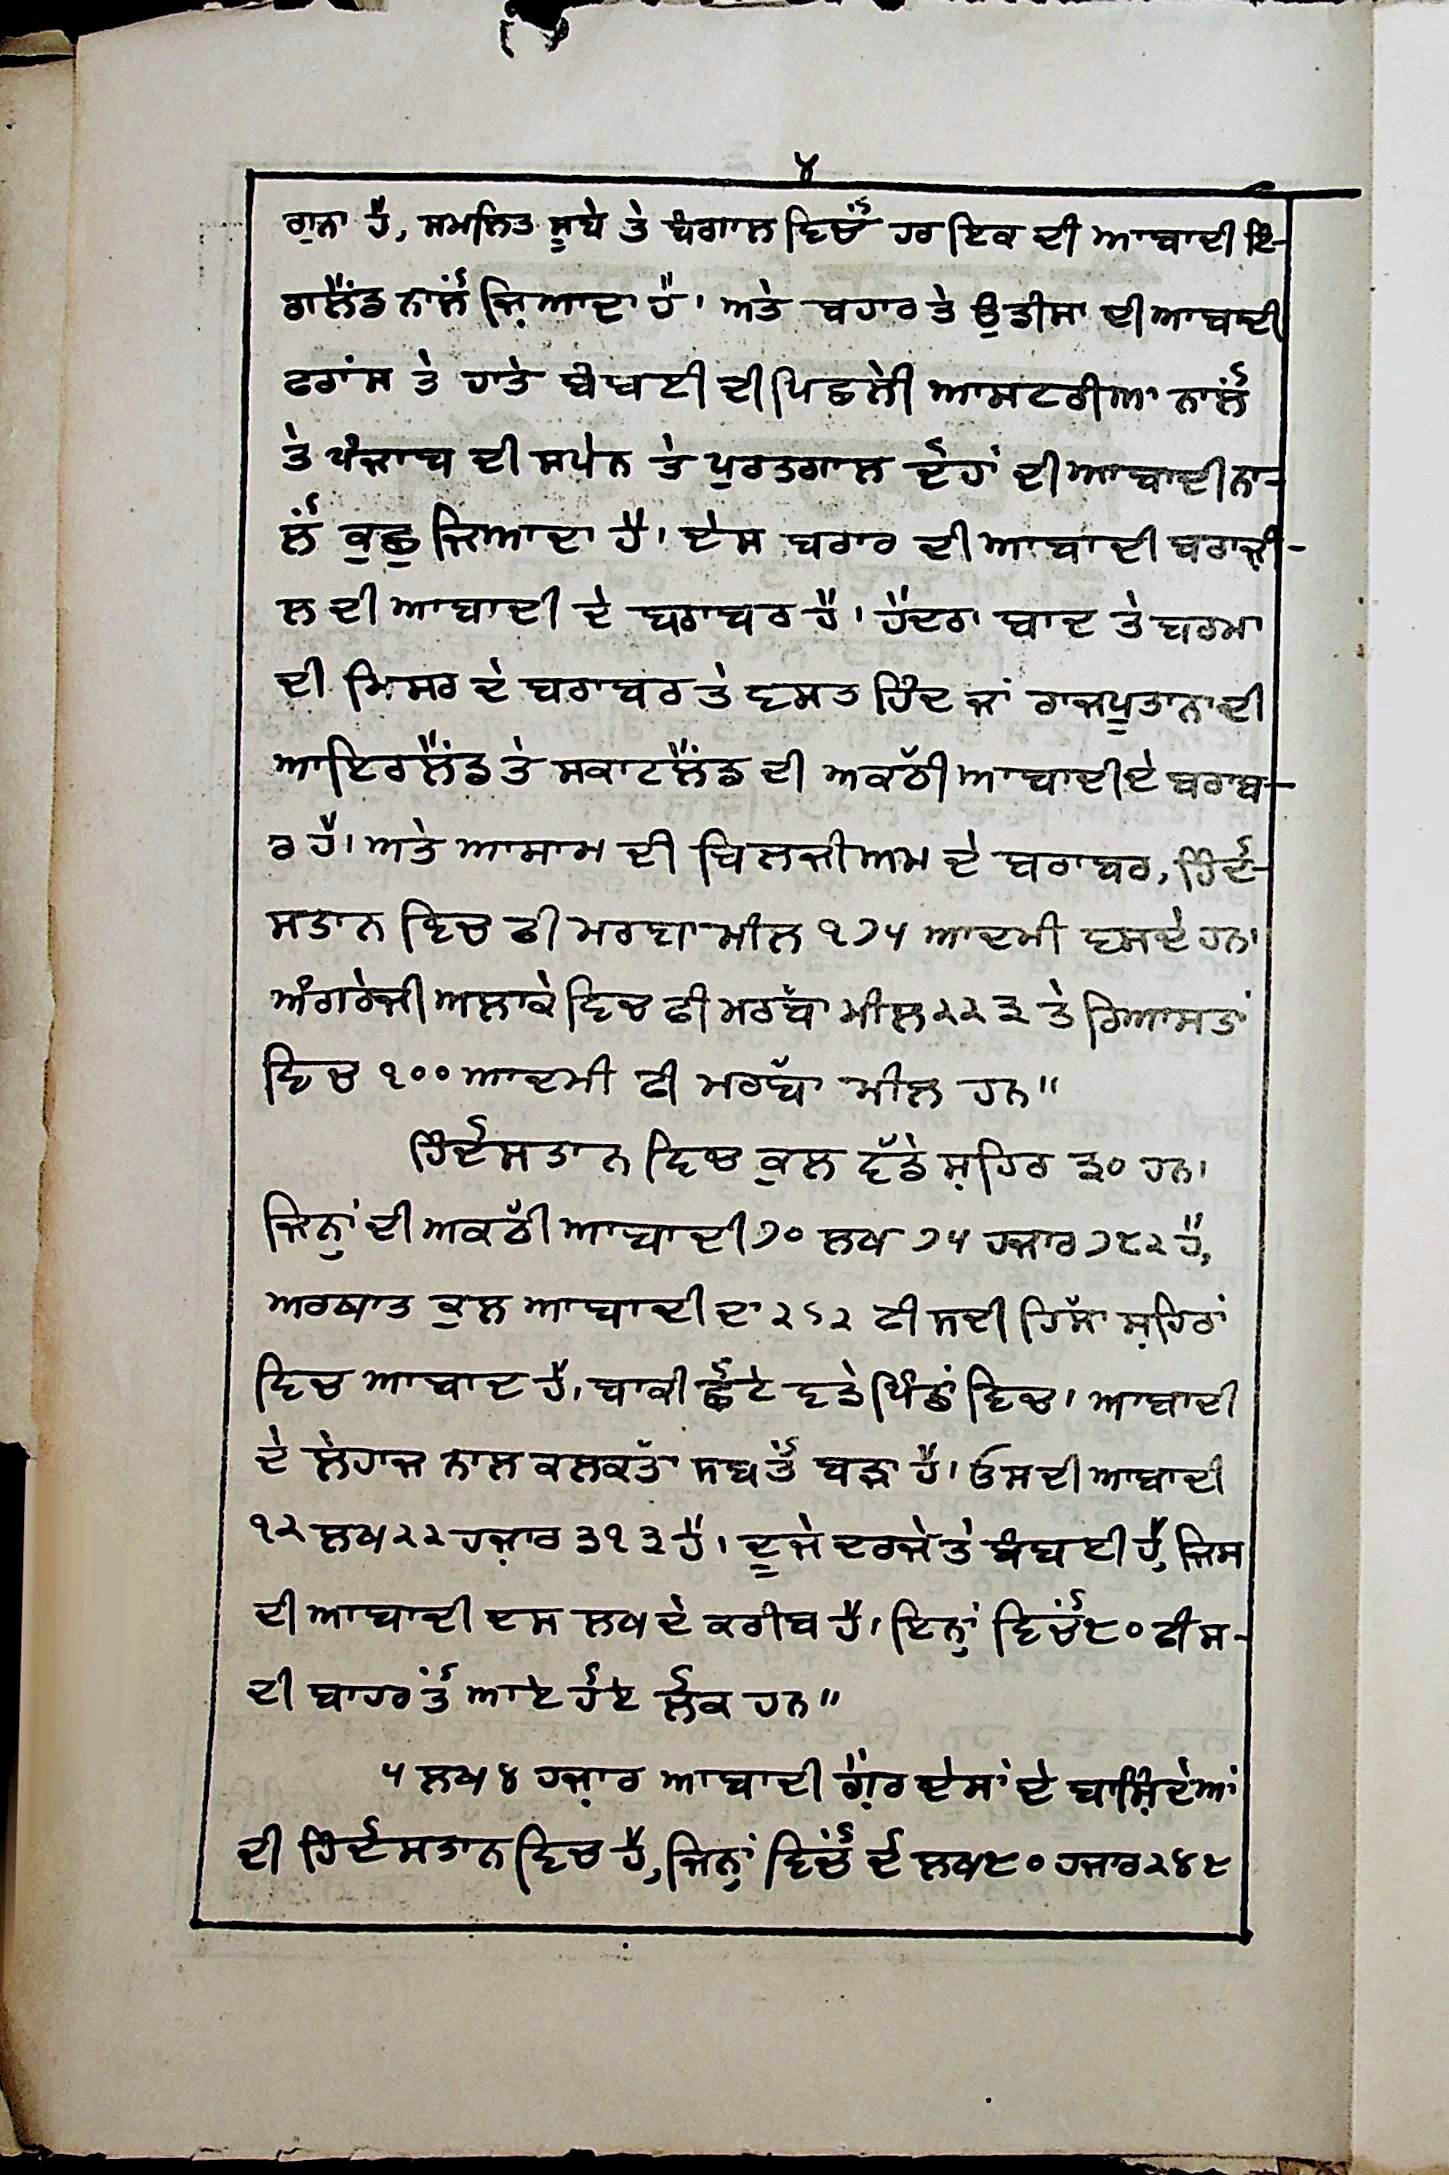 ੪
ਗੁਨਾ ਹੈ, ਸਮਲਿਤ ਸੂਬੇ ਤੇ ਬੰਗਾਲ ਵਿਚੋਂ ਹਰ ਇਕ ਦੀ ਆਬਾਦੀ ਇੰ-
ਗਲੈਂਡ ਨਾਲੋਂ ਜ਼ਿਆਦਾ ਹੈ। ਅਤੇ ਬਹਾਰ ਤੇ ਉਡੀਸਾ ਦੀ ਆਬਾਦੀ
ਫਰਾਂਸ ਤੇ ਹਾਤੇ ਬੰਬਈ ਦੀ ਪਿਛਲੀ ਆਸਟਰੀਆ ਨਾਲੋਂ
ਤੇ ਪੰਜਾਬ ਦੀ ਸਪੇਨ ਤੇ ਪੁਰਤਗਾਲ ਦੋਹਾਂ ਦੀ ਆਬਾਦੀ ਨਾ-
ਲੋਂ ਕੁਛ ਜਿਆਦਾ ਹੈ। ਦੇਸ ਬਰਾਰ ਦੀ ਆਬਾਦੀ ਬਰਾਜ਼ੀ-
ਲ ਦੀ ਆਬਾਦੀ ਦੇ ਬਰਾਬਰ ਹੈ। ਹੈਦਰਾ ਬਾਦ ਤੇ ਬਰਮਾ
ਦੀ ਮਿਸਰ ਦੇ ਬਰਾਬਰ ਤੇ ਵਸਤ ਹਿੰਦ ਜਾਂ ਰਾਜਪੂਤਾਨਾ ਦੀ
ਆਇਰਲੈਂਡ ਤੇ ਸਕਾਟਲੈਂਡ ਦੀ ਅਕਠੀ ਆਬਾਦੀ ਦੇ ਬਰਾਬ-
ਰ ਹੈ। ਅਤੇ ਆਸਾਮ ਦੀ ਬਿਲਜੀਅਮ ਦੇ ਬਰਾਬਰ, ਹਿੰਦੋ-
ਸਤਾਨ ਵਿਚ ਫੀ ਮਰਬਾ ਮੀਲ ੧੭੫ ਆਦਮੀ ਵਸਦੇ ਹਨ।
ਅੰਗਰੇਜੀ ਅਲਾਕੇ ਵਿਚ ਫੀ ਮਰੱਬਾ ਮੀਲ ੨੨੩ ਤੇ ਰਿਆਸਤਾਂ
ਵਿਚ ੧੦੦ ਆਦਮੀ ਫੀ ਮਰੱਬਾ ਮੀਲ ਹਨ॥
ਹਿੰਦੋਸਤਾਨ ਵਿਚ ਕੁਲ ਵੱਡੇ ਸ਼ਹਿਰ ੩੦ ਹਨ।
ਜਿਨ੍ਹਾਂ ਦੀ ਅਕਠੀ ਆਬਾਦੀ ੭੦ ਲਖ ੭੫ ਹਜਾਰ ੭੮੨ ਹੈ,
ਅਰਥਾਤ ਕੁਲ ਆਬਾਦੀ ਦਾ ੨੬੨ ਫੀ ਸਦੀ ਹਿੱਸਾ ਸ਼ਹਿਰਾਂ
ਵਿਚ ਆਬਾਦ ਹੈ। ਬਾਕੀ ਛੋਟੇ ਵਡੇ ਪਿੰਡਾਂ ਵਿਚ। ਆਬਾਦੀ
ਦੇ ਲੇਹਾਜ ਨਾਲ ਕਲਕੱਤਾ ਸਬਤੋਂ ਬੜਾ ਹੈ। ਓਸ ਦੀ ਆਬਾਦੀ
੧੨ ਲਖ ੨੨ ਹਜ਼ਾਰ ੩੧੩ ਹੈ। ਦੂਜੇ ਦਰਜੇ ਤੇ ਬੰਬਈ ਹੈ, ਜਿਸ
ਦੀ ਆਬਾਦੀ ਦਸ ਲਖ ਦੇ ਕਰੀਬ ਹੈ। ਇਨ੍ਹਾਂ ਵਿਚੋਂ ੮੦ ਫੀ ਸ-
ਦੀ ਬਾਹਰ ਤੋਂ ਆਏ ਹੋਏ ਲੋਕ ਹਨ॥
੫ ਲਖ ੪ ਹਜ਼ਾਰ ਆਬਾਦੀ ਗ਼ੈਰ ਦੇਸਾਂ ਦੇ ਬਾਸ਼ਿੰਦੇਆਂ
ਦੀ ਹਿੰਦੋਸਤਾਨ ਵਿਚ ਹੈ, ਜਿਨ੍ਹਾਂ ਵਿਚੋਂ ਦੋ ਲਖ ੮੦ ਹਜਾਰ ੨੪੮